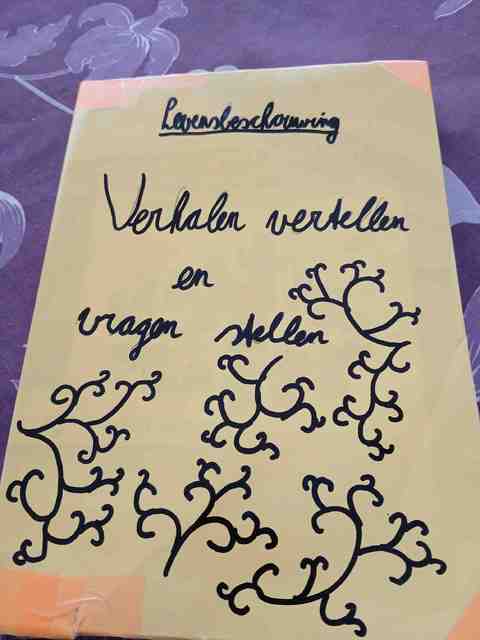 Levensbeschouwing
Verhalen vertellen
en
vragen stellen